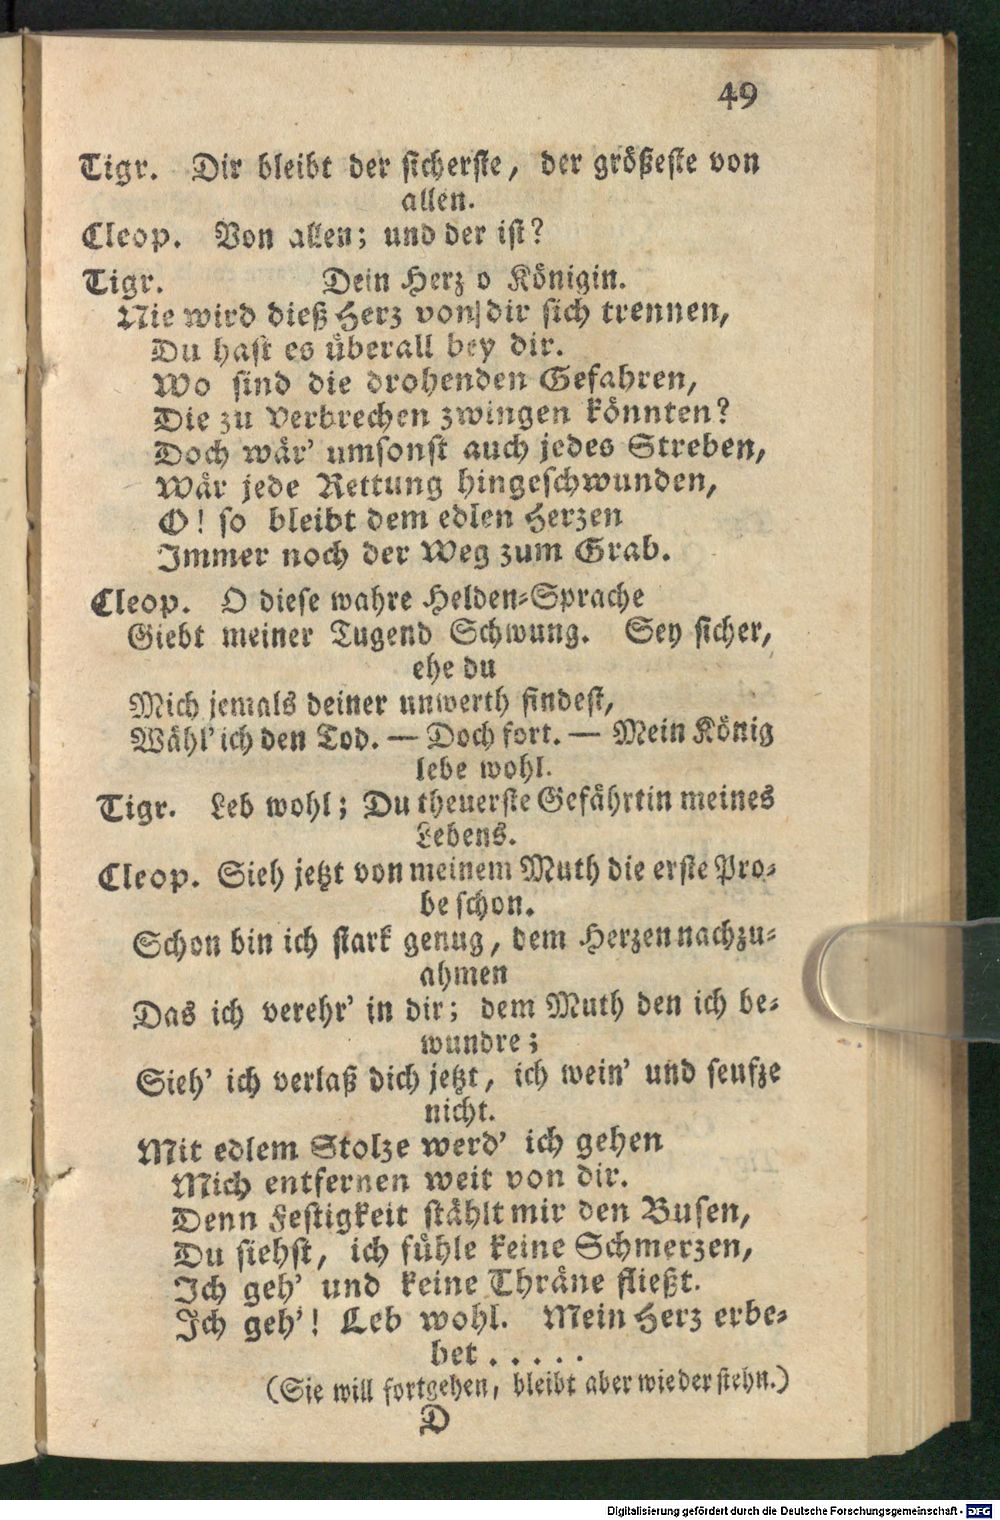 49
Tigr. Dir bleibt der sicherste, der größeste von
allen.
Cleop. Von allen; und der ist?
Tigr. Dein Herz o Königin.
Nie wird dieß Herz von dir sich trennen,
Du hast es überall bey dir.
Wo sind die drohenden Gefahren,
Die zu Verbrechen zwingen könnten?
Doch wär' umsonst auch jedes Streben,
Wär jede Rettung hingeschwunden,
O! so bleibt dem edlen Herzen
Immer noch der Weg zum Grab.
Cleop. O diese wahre Helden-Sprache
Giebt meiner Tugend Schwung. Sey sicher,
ehe du
Mich jemals deiner unwerth findest,
Wähl' ich den Tod. — Doch fort. — Mein König
lebe wohl.
Tigr. Leb wohl; Du theuerste Gefährtin meines
Lebens.
Cleop. Sieh jetzt von meinem Muth die erste Pro-
be schon.
Schon bin ich stark genug, dem Herzen nachzu-
ahmen
Das ich verehr' in dir; dem Muth den ich be-
wundre;
Sieh' ich verlaß dich jetzt, ich wein' und seufze
nicht.
Mit edlem Stolze werd' ich gehen
Mich entfernen weit von dir.
Denn Festigkeit stählt mir den Busen,
Du siehst, ich fühle keine Schmerzen,
Ich geh' und keine Thräne fließt.
Ich geh'! Leb wohl. Mein Herz erbe-
bet . . . . .
(Sie will fortgehen, bleibt aber wieder stehn.)
D
Digitalisierung gefördert durch die Deutsche Forschungsgemeinschaft - DFG